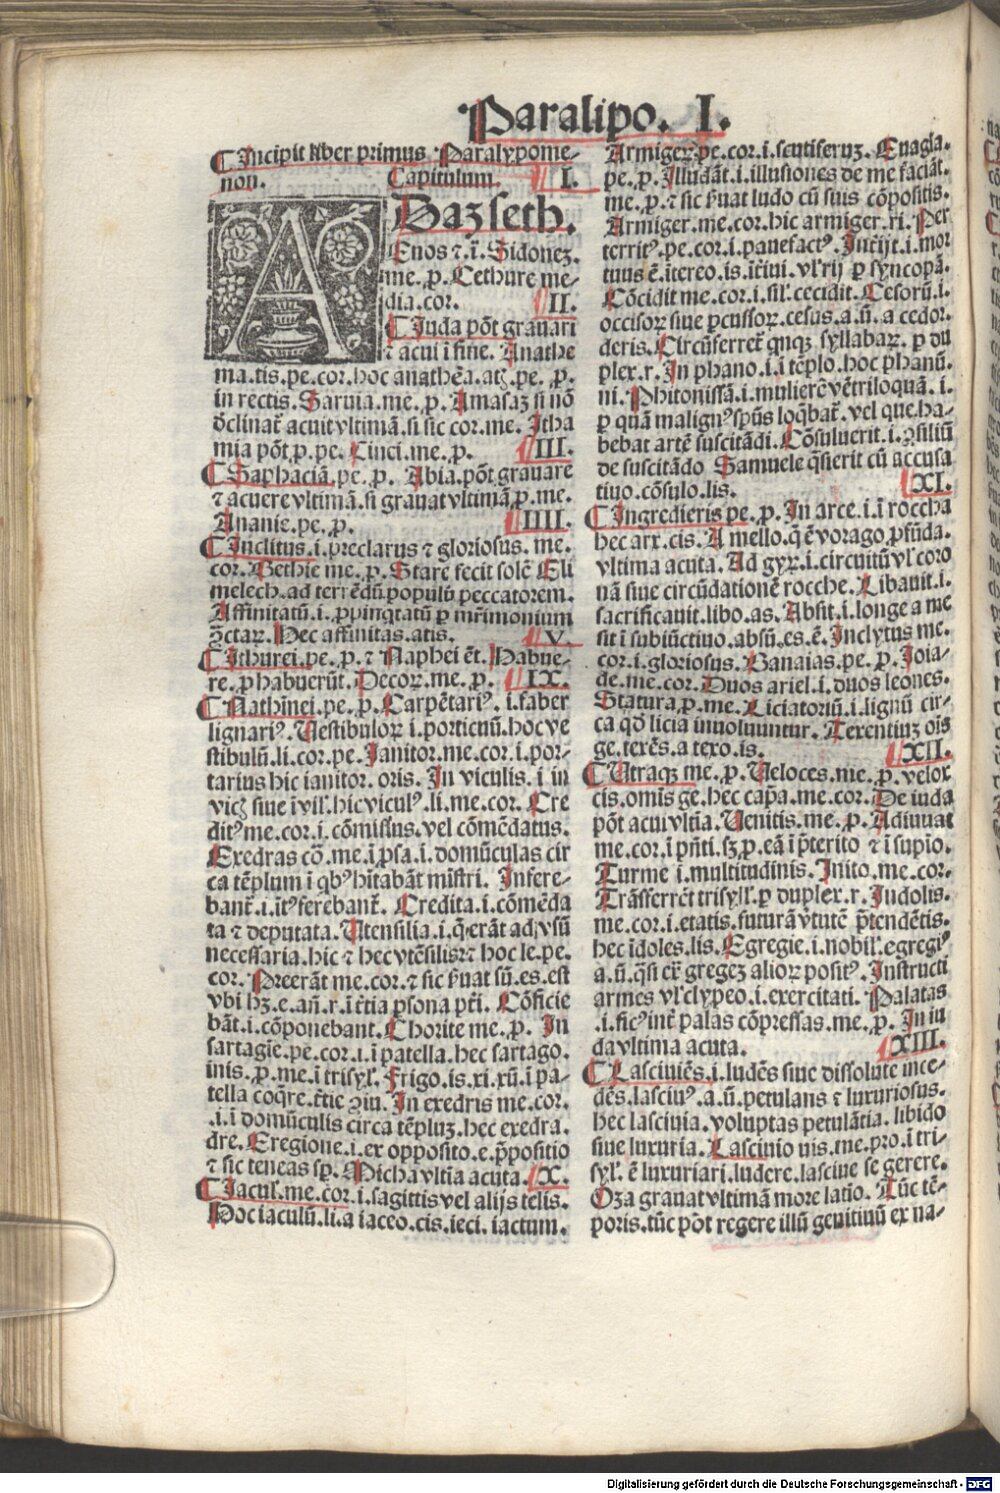 Paralipo. I.
¶ Incipit liber primus Paralypome-
non. Capitulum. I.
ADaz seth.
Enos ⁊ .i. Sidonez.
me. p. Cethure me
dia. cor. II.
¶ Juda põt grauari
⁊ acui ĩ fine. Anathe
ma. tis. pe. cor. hoc anathẽa. atꝭ. pe. p.
in rectis. Saruia. me. p. Amasaz si nõ
declinat᷑ acuit vltimã. si sic cor. me. Itha
mia põt. p. pe. Cinci. me. p. III.
¶ Saphaciã. pe. p. Abia. põt grauare
⁊ acuere vltimã. si grauat vltimã p. me.
Ananie. pe. p. IIII.
¶ Inclitus. i. preclarus ⁊ gloriosus. me.
cor. Bethie me. p. Stare fecit solẽ Eli
melech. ad terrẽdũ populũ peccatorem.
Affinitatũ. i. ꝓpinqtatũ ꝑ mr̃imonium
ꝯctaꝝ. Hec affinitas. atis. V.
¶ Ithurei. pe. p. ⁊ Naphei ẽt. Habue-
re. p habuerũt. Decor. me. p. IX.
¶ Nathinei. pe. p. Carpẽtariꝰ. i. faber
lignariꝰ. Vestibuloꝝ i. porticuũ. hoc ve
stibulũ. li. cor. pe. Janitor. me. cor. i. por-
tarius hic ianitor. oris. In viculis. i. in
vicꝭ siue ĩ vil̃. hic viculꝰ. li. me. cor. Cre
ditꝰ me. cor. i. cõmissus. vel cõmẽdatus.
Exedras cõ. me. ĩ ꝓsa. i. domũculas cir
ca tẽplum ĩ qbꝰ hĩtabãt mĩstri. Infere-
bant᷑. i. ĩtꝰ ferebant᷑. Credita. i. cõmẽda
ta ⁊ deputata. Vtensilia. i. q̃ erãt ad vsũ
necessaria. hic ⁊ hec vtẽsilis ⁊ hoc le. pe.
cor. Preerãt me. cor. ⁊ sic p̃uat sũ. es. est
vbi hꝫ. e. añ. r. ĩ tr̃tia ꝑsona pr̃ti. Cõficie
bãt. i. cõponebant. Chorite me. p. In
sartagĩe. pe. cor. i. ĩ patella. hec sartago.
inis. p. me. ĩ trisyl̃. Frigo. is. xi. xũ. ĩ pa-
tella coq̃re. tr̃tie ꝯiu. In exedris me. cor.
.i. ĩ domũculis circa tẽpluꝫ. hec exedra.
dre. Eregione. i. ex opposito. e. p̃positio
⁊ sic teneas sp̃. Micha vltĩa acuta. X.
¶ Jacul̃. me. cor. i. sagittis vel alijs telis.
Hoc iaculũ. li. a iaceo. cis. ieci. iactum.
Armigeꝝ. pe. cor. i. scutiferuꝫ. Euagia.
pe. p. Illudãt. i. illusiones de me faciãt.
me. p. ⁊ sic p̃uat ludo cũ suis cõpositis.
Armiger. me. cor. hic armiger. ri. Per
territꝰ. pe. cor. i. pauefactꝰ. Intijt. i. mor
tuus ẽ. ĩtereo. is. ĩtĩui. vl̃ rij ꝑ syncopã.
Cõcidit me. cor. i. sil̃ cecidit. Cesorũ. i.
occisoꝝ siue ꝑcussoꝝ. cesus. a. ũ. a cedor.
deris. Circũferret᷑ qnqꝫ syllabaꝝ. ꝑ du
plex. r. In phano. i. ĩ tẽplo. hoc phanũ.
ni. Phitonissã. i. mulierẽ vẽtriloquã. i.
ꝑ quã malignꝰ spũs loq̃bat᷑. vel que ha-
bebat artẽ suscitãdi. Cõsuluerit. i. ꝯsiliũ
de suscitãdo Samuele q̃sierit cũ accusa
tiuo. cõsulo. lis. XI.
¶ Ingredieris pe. p. In arce. i. ĩ roccha
hec arx. cis. A mello. q̃ ẽ vorago ꝓfũda.
vltima acuta. Ad gyꝝ. i. circuitũ vl̃ coro
nã siue circũdationẽ rocche. Libauit. i.
sacrificauit. libo. as. Absit. i. longe a me
sit ĩ subiũctiuo. absũ. es. ẽ. Inclytus me.
cor. i. gloriosus. Banaias. pe. p. Joia-
de. me. cor. Duos ariel. i. duos leones.
Statura. p. me. Liciatoriũ. i. lignũ cir-
ca qđ licia inuoluuntur. Texentiuꝫ oĩs
ge. texẽs. a texo. is. XII.
¶ Vtraqꝫ me. p. Veloces. me. p. velox
cis. omĩs ge. hec capr̃a. me. cor. De iuda
põt acui vltĩa. Venitis. me. p. Adiuuat
me. cor. ĩ pñti. sꝫ p. eã ĩ p̃terito ⁊ ĩ supĩo.
Turme i. multitudinis. Inito. me. cor.
Trãsferrẽt trisyl̃. ꝑ duplex. r. Indolis.
me. cor. i. etatis. futurã v̾tutẽ p̃tendẽtis.
hec ĩdoles. lis. Egregie. i. nobil̃. egregiꝰ
a. ũ. q̃si er̃ gregeꝫ alioꝝ positꝰ. Instructi
armes vl̃ clypeo. i. exercitati. Palatas
.i. ficꝰ int᷑ palas cõpressas. me. p. In iu
da vltima acuta. XIII.
¶ Lasciuiẽs. i. ludẽs siue dissolute ince-
dẽs. lasciuꝰ. a. ũ. petulans ⁊ luxuriosus.
hec lasciuia. voluptas petulãtia. libido
siue luxuria. Lasciuio uis. me. pro. ĩ tri-
syl̃. ẽ luxuriari. ludere. lasciue se gerere.
Oza grauat vltimã more latio. Tũc tẽ-
poris. tũc põt regere illũ genitiuũ ex na-
Digitalisierung gefördert durch die Deutsche Forschungsgemeinschaft - DFG